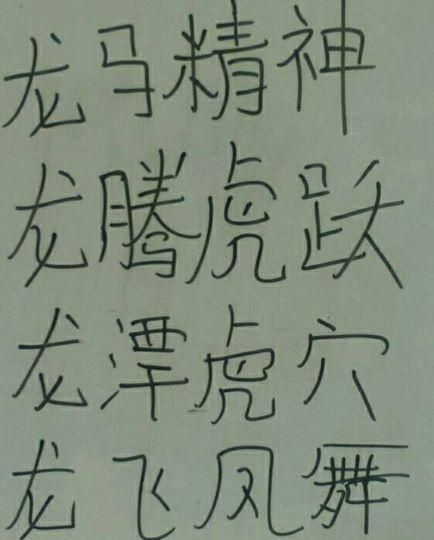 龙马精神
龙腾虎跃
龙潭虎穴
龙飞凤舞